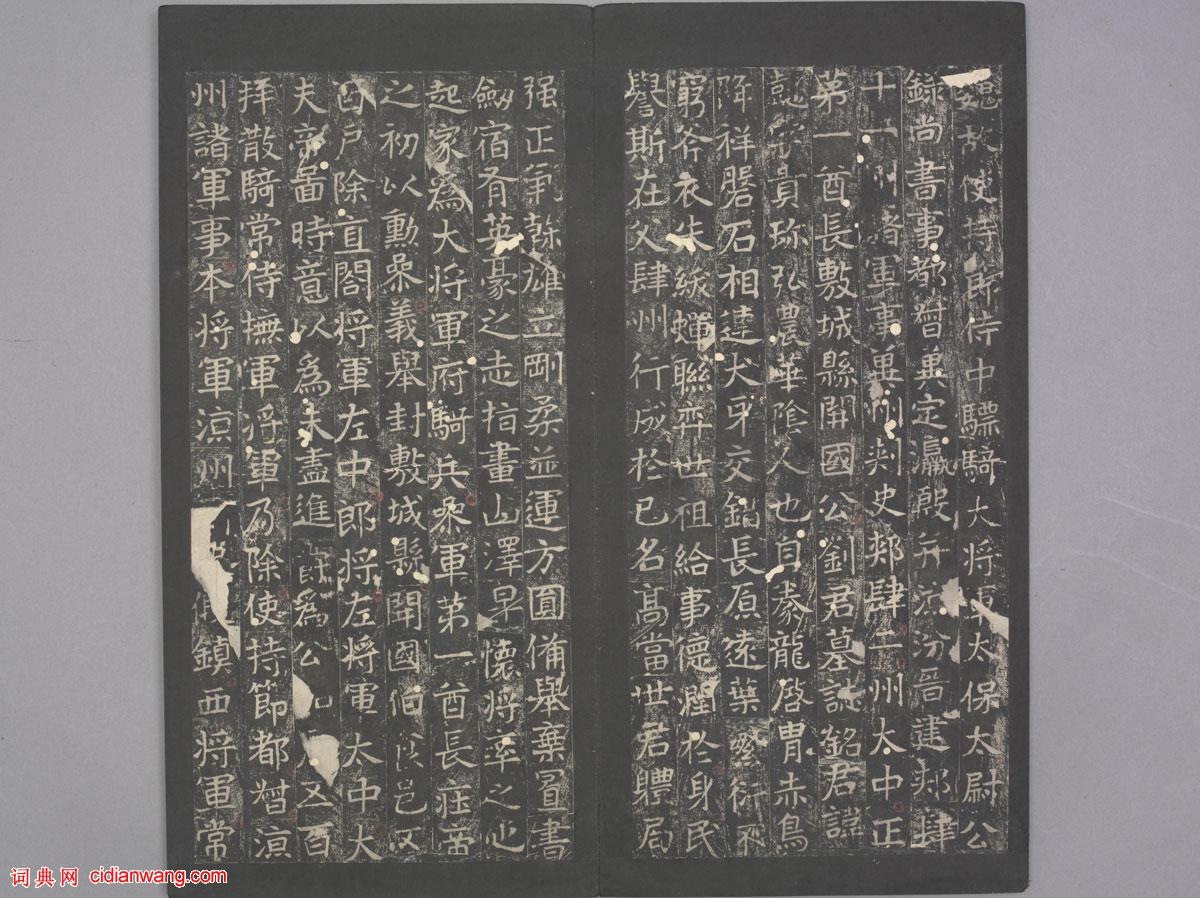 魏故使持節侍中驃騎大將軍太保太尉公
錄尚書事都督冀定瀛殷并涼汾晉建郟肆
十一州諸軍事冀州刾史郟肆二州大中正
第一酋長敷城縣開國公劉君墓誌銘君諱
懿字貴珍弘農華陰人也自豢龍啓胄赤烏
降祥磐石相連犬牙交錯長原遠葉繁衍不
窮斧衣朱紱蟬聯弈世祖給事德潤於身民
譽斯在父肆州行成於已名高當世君體局
强正氣幹雄立剛柔並運方圓備舉棄置書
劒宿有英豪之志指畫山澤早懷將率之心
起家為大將軍府騎兵參軍第一酋長莊帝
之初以勳參義舉封敷城縣開國伯食邑五
百戶除直閤將軍左中郎將左將軍太中大
夫帝啚時意以為未盡進爵為公加五百
拜散騎常侍撫軍將軍乃除使持節都督涼
州諸軍事本將軍涼州假鎮西將軍常
词典网 cidianwang.com